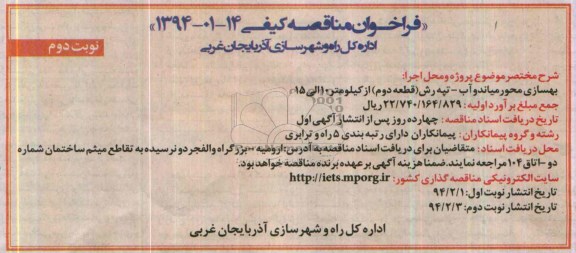 «فراخوان مناقصه کیفی ۱۴-۰۱-۱۳۹۴»
اداره کل راه و شهرسازی آذربایجان غربی
نوبت دوم
شرح مختصر موضوع پروژه و محل اجرا:
بهسازی محور میاندوآب - تپه رش (قطعه دوم) از کیلومتر ۱۰ الی ۱۵
جمع مبلغ برآورد اولیه: ۲۲/۷۴۰/۱۶۴/۸۲۹ ریال
تاریخ دریافت اسناد مناقصه: چهارده روز پس از انتشار آگهی اول
رشته و گروه پیمانکاران: پیمانکاران دارای رتبه بندی ۵ راه و ترابری
محل دریافت اسناد: متقاضیان برای دریافت اسناد مناقصه به آدرس: ارومیه - بزرگراه والفجر دو نرسیده به تقاطع میثم ساختمان شماره
دو - اتاق ۱۰۴ مراجعه نمایند. ضمنا هزینه آگهی بر عهده برنده مناقصه خواهد بود.
سایت الکترونیکی مناقصه گذاری کشور: http://iets.mporg.ir
تاریخ انتشار نوبت اول: ۹۴/۲/۱
تاریخ انتشار نوبت دوم: ۹۴/۲/۳
اداره کل راه و شهرسازی آذربایجان غربی